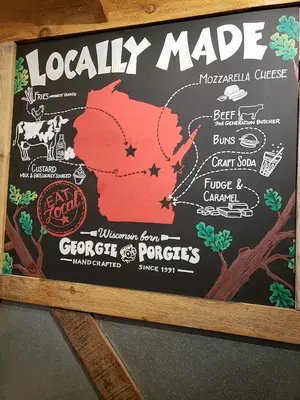 LOCALLY MADE
MOZZARELLA CHEESE
FRIES
BEEF
2ND GENERATION BUTCHER
BUNS
CRAFT SODA
CUSTARD
MILK & EGGS LOCALLY SOURCED
FUDGE &
CARAMEL
EAT
Local
Wisconsin born
GEORGIE PORGIE'S
HANDCRAFTED SINCE 1991